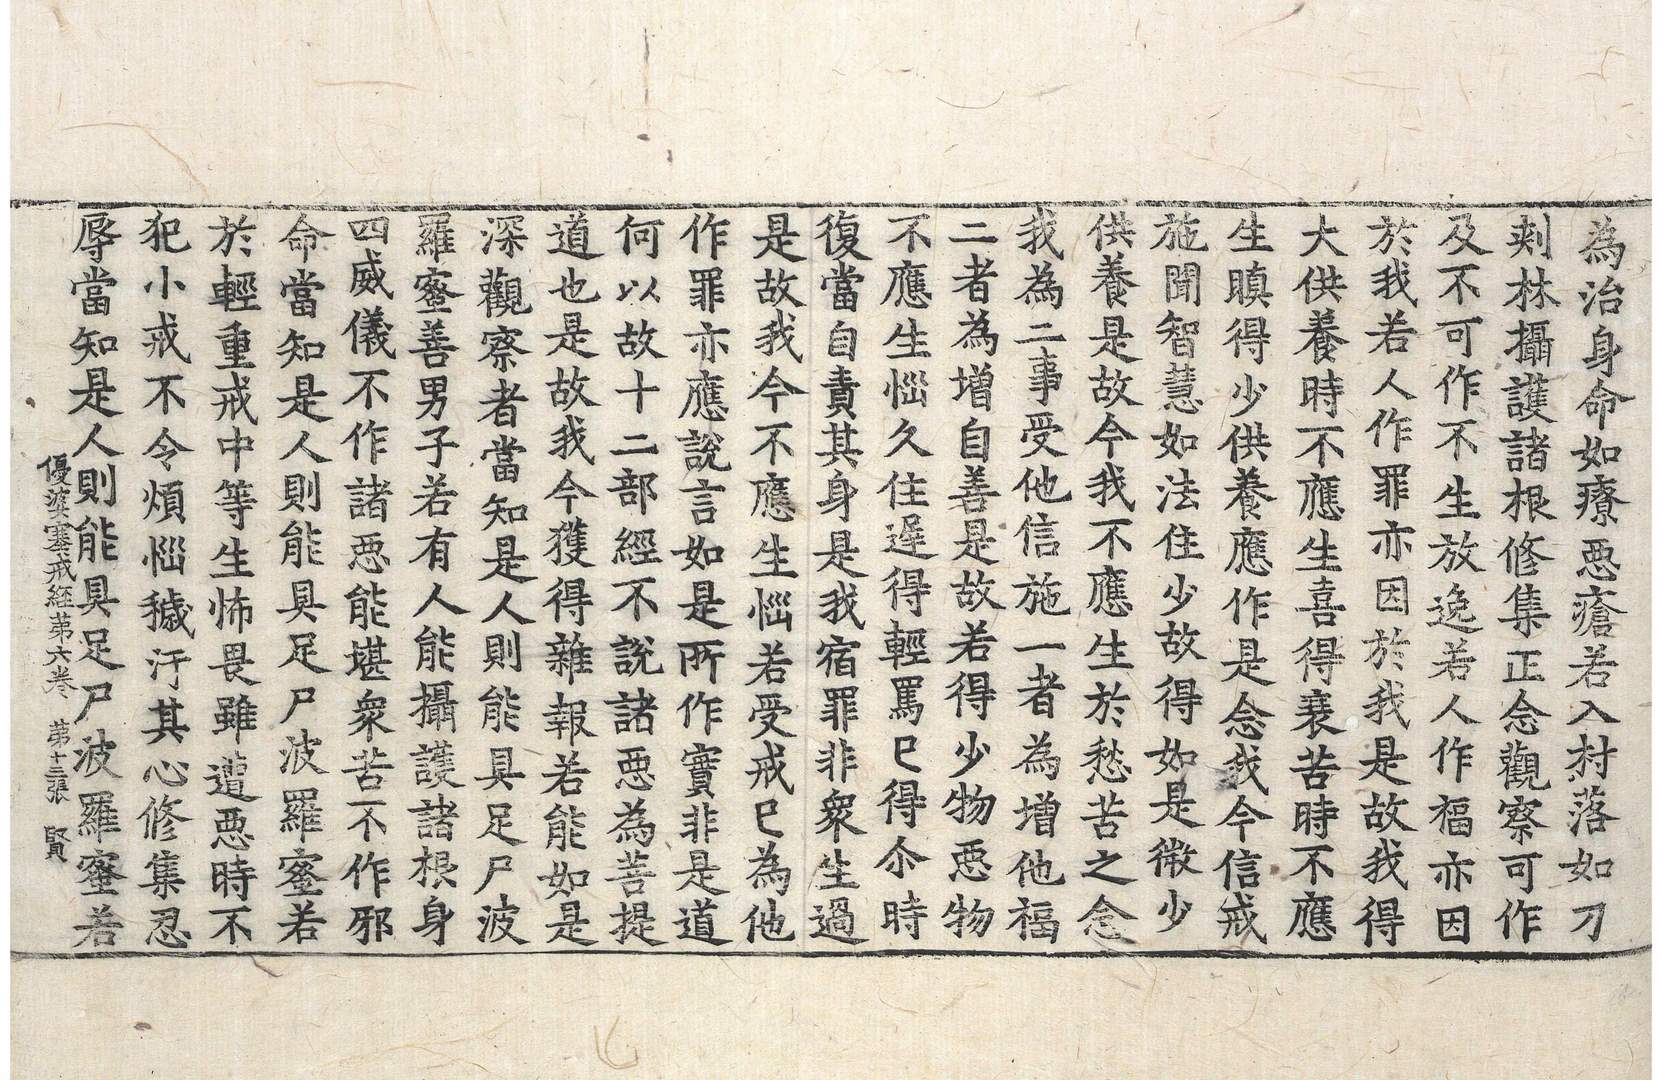 為治身命如療惡瘡若入村落如刀
刺林攝護諸根修集正念觀察可作
及不可作不生放逸若人作福亦因
於我若人作罪亦因於我是故我得
大供養時不應生喜得衰苦時不應
生瞋得少供養應作是念我今信戒
施聞智慧如法住少故得如是微少
供養是故今我不應生於愁苦之念
我為二事受他信施一者為增他福
二者為增自善是故若得少物惡物
不應生惱久住遲得輕罵已得尒時
復當自責其身是我宿罪非衆生過
是故我今不應生惱若受戒已為他
作罪亦應說言如是所作實非是道
何以故十二部經不說諸惡為菩提
道也是故我今獲得雜報若能如是
深觀察者當知是人則能具足尸波
羅蜜善男子若有人能攝護諸根身
四威儀不作諸惡能堪衆苦不作邪
命當知是人則能具足尸波羅蜜若
於輕重戒中等生怖畏雖遭惡時不
犯小戒不令煩惱穢汙其心修集忍
辱當知是人則能具足尸波羅蜜若
優婆塞戒經第六卷 第十三張 賢